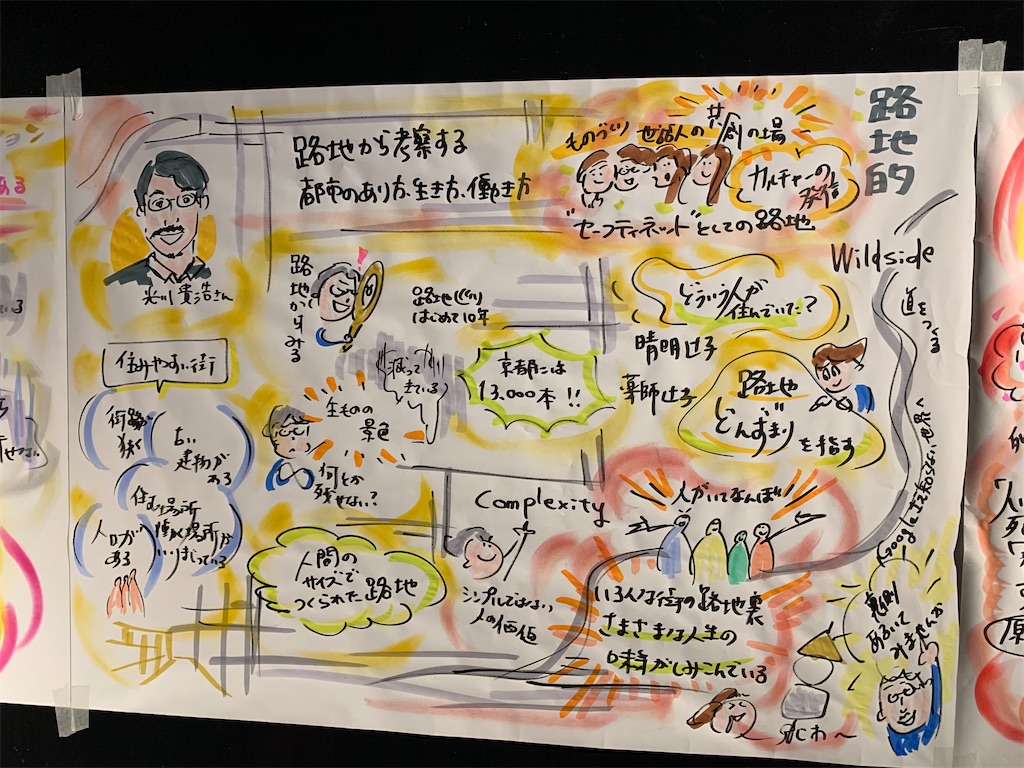 ョン
ある
路地から考察する
都市のあり方、生き方、働き方
貴浩さん
ものづくり 世話人の共創の場
カルチャーの
"セーフティーネット"としての路地
路地的
Wildside
道をつくる
路地からみる
路地づくり
はじめて10年
減って
きている
京都には
13,000本!!
どういう人が
住んでいた?
晴明辻子
薬師辻子
路地
どんずまり
を指す
住みやすい街
街路が
狭く
古い
建物が
ある
住む場所
働く場所が
いりまじっている
人口が
ある
生ものの
景色
何とか
残せない?
人間の
サイズで
つくられた路地
Complexity
シンプルではない
人の価値
人がいてなんぼ
いろんな街の路地裏
さまざまな人生の
味がしみこんでいる
Googleは知らない世界へ
裏側
あるいて
みませんか